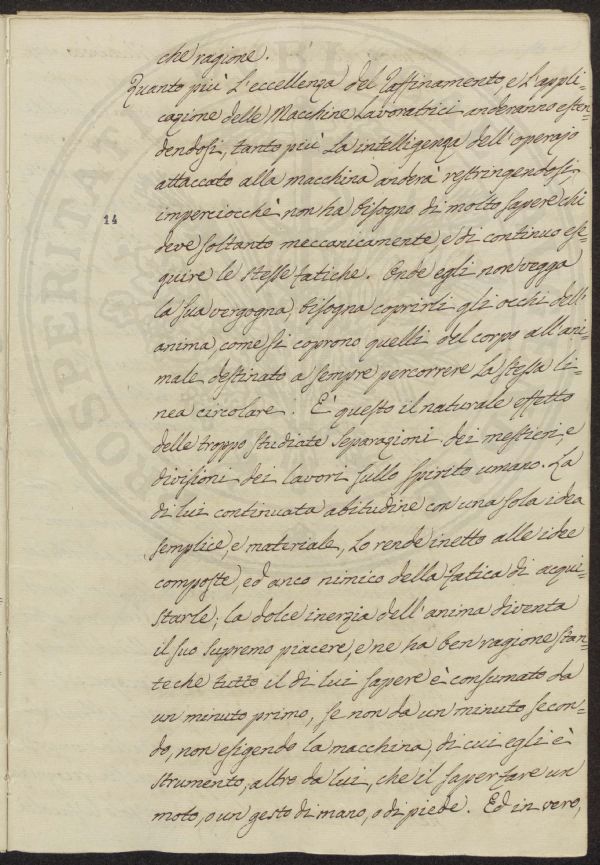 che ragione.
Quanto più L'eccellenza del Raffinamento, e L'appli=
cazione delle Macchine Lavoratrici anderanno esten=
dendosi, tanto più La intelligenza dell'operajo
attaccato alla macchina anderà restringendosi,
14
imperciocchè non ha bisogno di molto sapere chi
deve soltanto meccanicamente, e di continuo ese=
guire le stesse fatiche. Onde egli non vegga
la sua vergogna, bisogna coprirli gli occhi dell'
anima, come si coprono quelli del corpo all'ani=
male destinato a sempre percorrere La stessa li=
nea circolare. E' questo il naturale effetto
delle troppo studiate separazioni dei mestieri, e
divisioni dei lavori sullo spirito umano. La
di lui continuata abitudine con una sola idea
semplice, e materiale, Lo rende inetto alle idee
composte, ed anco nimico della fatica di acqui=
starle; la dolce inerzia dell'anima diventa
il suo supremo piacere, e ne ha ben ragione stan=
te che tutto il di lui sapere è consumato da
un minuto primo, se non da un minuto secon=
do, non esigendo la macchina, di cui egli è
strumento, altro da lui, che il saper fare un
moto, o un gesto di mano, o di piede. Ed in vero,